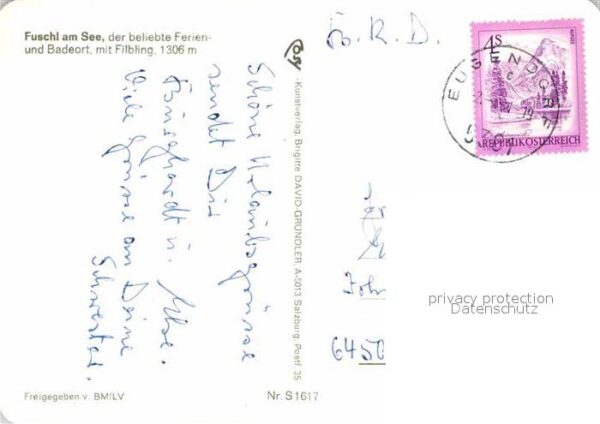 Fuschl am See, der beliebte Ferien-
und Badeort, mit Filbling, 1306 m
Schöne Urlaubsgrüsse
sendet Dir
u.
Viele Grüsse an Deine
Schwester.
Freigegeben v. BMfLV
Nr. S1617
-Kunstverlag, Brigitte DAVID-GRÜNDLER, A-5013 Salzburg, Postf. 35
B. R. D.
4S
REPUBLIK ÖSTERREICH
EUGENDORF
Joh
6450
privacy protection
Datenschutz